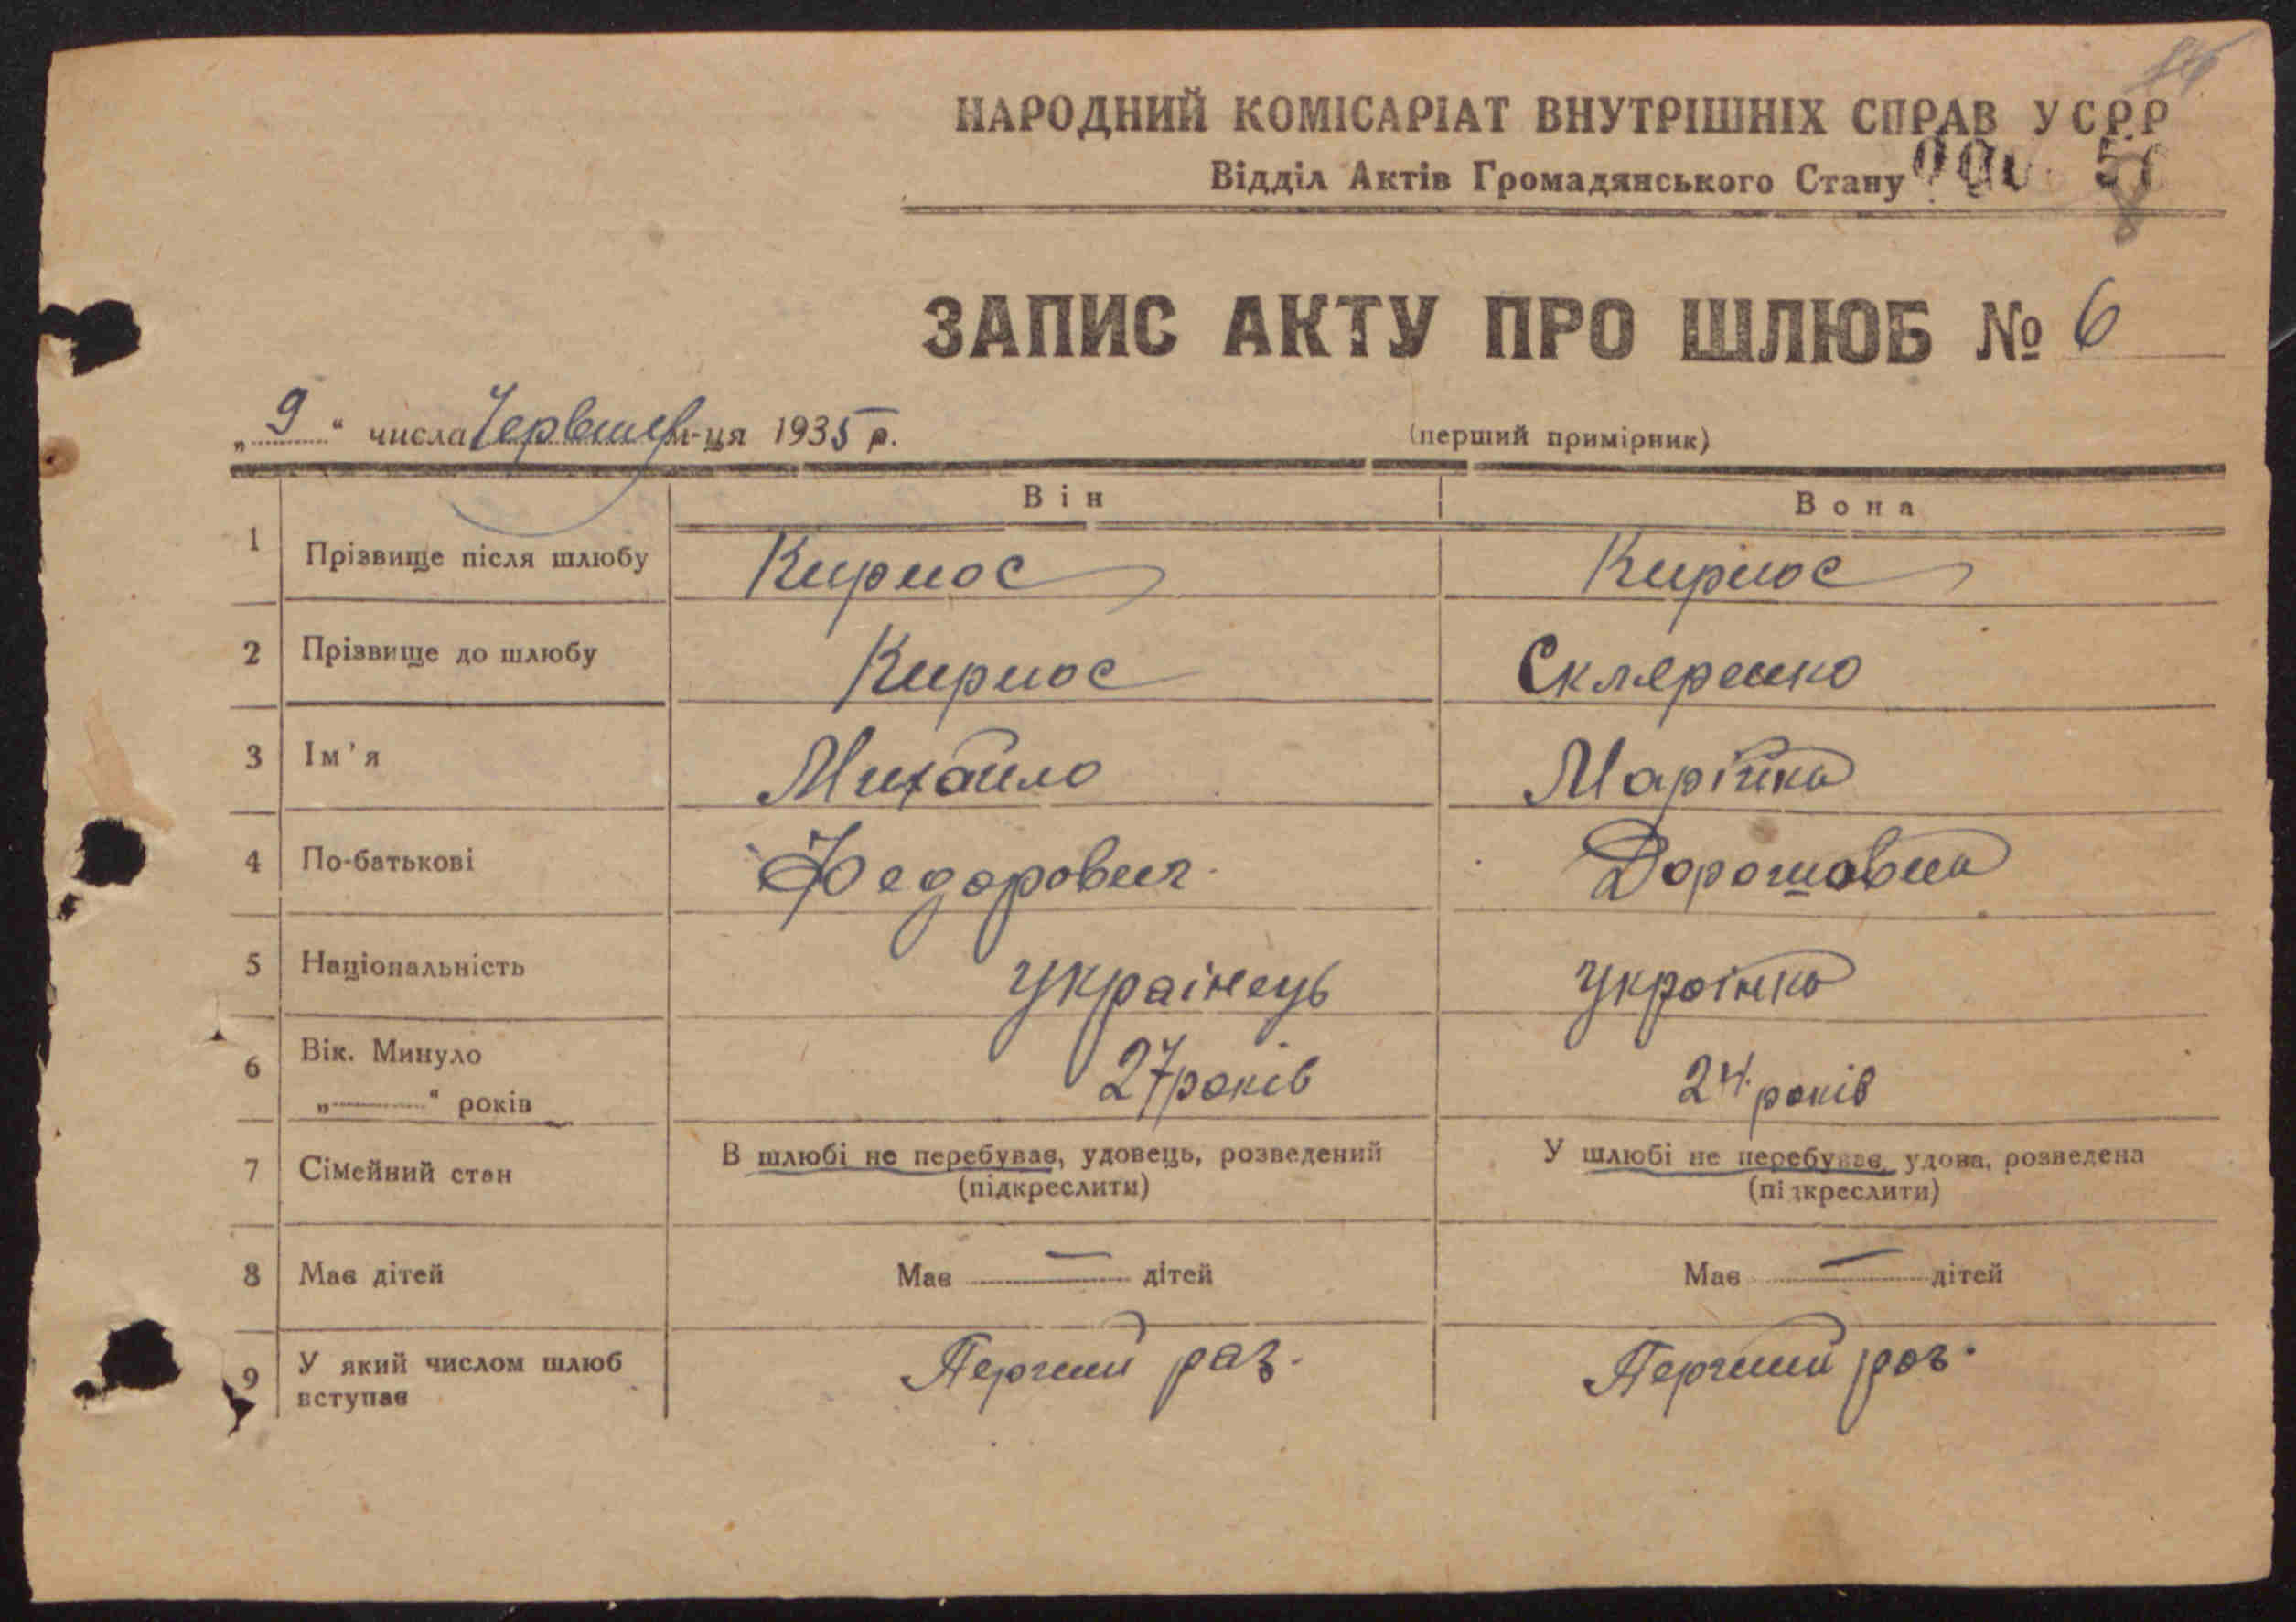 НАРОДНИЙ КОМІСАРІАТ ВНУТРІШНІХ СПРАВ УСРР
Відділ Актів Громадянського Стану
ЗАПИС АКТУ ПРО ШЛЮБ № 6
„9“ числа Червня м-ця 1935 р.
(перший примірник)
Він Вона
1 Прізвище після шлюбу Кирнос Кирнос
2 Прізвище до шлюбу Кирнос Скляренко
3 Ім'я Михайло Марійка
4 По-батькові Федорович Дорошовна
5 Національність Українець Українка
6 Вік. Минуло
„——“ років 27 років 24 років
7 Сімейний стан В шлюбі не перебував, удовець, розведений У шлюбі не перебував, удова, розведена
(підкреслити) (підкреслити)
8 Має дітей Має — дітей Має — дітей
9 У який числом шлюб вступає Перший раз. Перший раз.